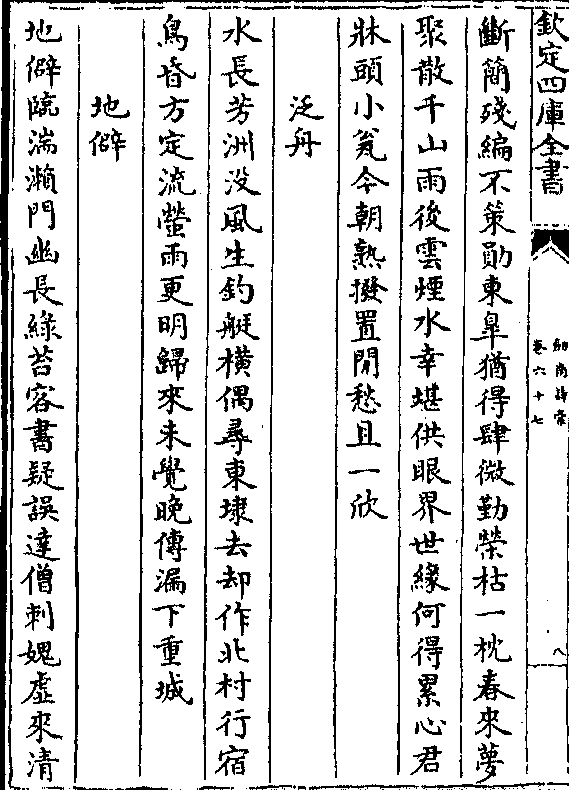 欽定四庫全書
劍南詩稾
卷六十七
八
斷簡殘編不策勛東臯猶得肆微勤榮枯一枕春來夢
聚散千山雨後雲煙水幸堪供眼界世緣何得累心君
牀頭小瓮今朝熟撥置閒愁且一欣
泛舟
水長芳洲没風生釣艇橫偶尋東埭去却作北村行宿
鳥昏方定流螢雨更明歸來未覺晚傳漏下重城
地僻
地僻臨湍瀨門幽長綠苔客書疑誤達僧刺媿虛來清